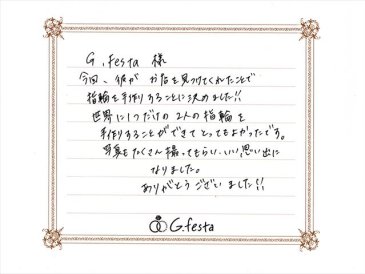 G.festa 様
今回、彼が お店を見つけてくれたことで
指輪を手作りすることに決めました!!
世界に1つだけの 2人の指輪を
手作りすることができて とってもよかったです。
写真もたくさん撮ってもらい、いい思い出に
なりました。
ありがとうございました!!
G.festa